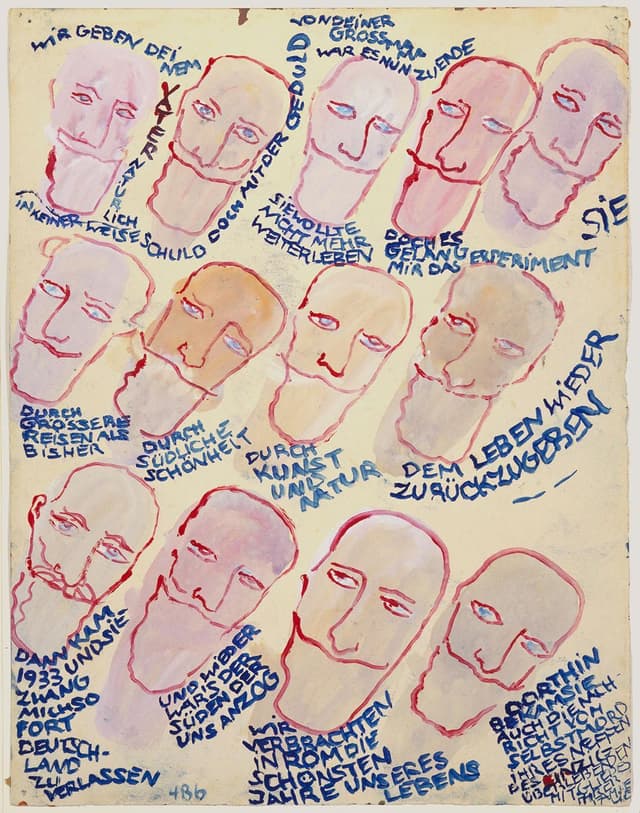 WIR GEBEN DEI
NEM
VATER
NATÜR
LICH
IN KEINER WEISE SCHULD DOCH MIT DER GEDULD
VON DEINER
GROSSMAMA
WAR ES NUN ZU ENDE
SIE WOLLTE
NICHT MEHR
WEITERLEBEN
DOCH ES
GELANG EXPERIMENT
MIR DAS
SIE
DURCH
GRÖSSERE
REISEN ALS
BISHER
DURCH
SÜDLICHE
SCHÖNHEIT
DURCH
KUNST
UND
NATUR
DEM LEBEN WIEDER
ZURÜCKZUGEBEN
DANN KAM
1933 UND SIE
ZWANG
MICH SO
FORT
DEUTSCH-
LAND
ZU
VERLASSEN
UND WIEDER
WAR ES DER
SÜDEN DER
UNS ANZOG
WIR
VERBRACHTEN
IN ROM DIE
SCHÖNSTEN
JAHRE UNSERES
LEBENS
DORTHIN
BEKAM SIE
AUCH DIE NACH-
RICHT VOM
SELBSTMORD
IHRES NEFFEN
DES EINZIG
ÜBERLEBENDEN
MITGLIED
486